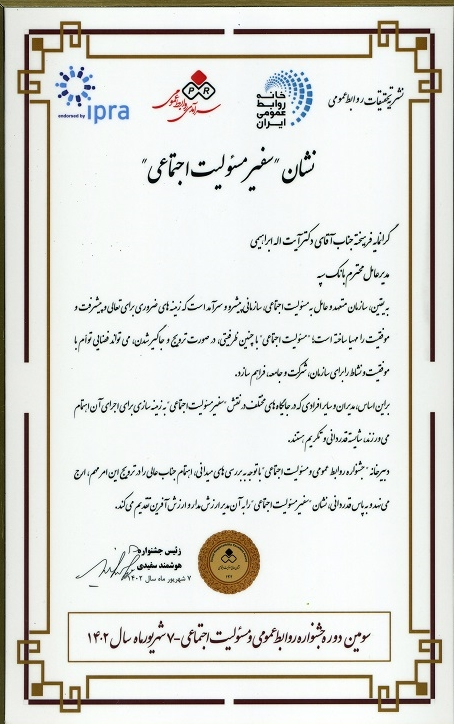 نشر تحقیقات روابط عمومی
خانه
روابط
عمومی
ایران
PR
سرآمدی روابط عمومی
endorsed by ipra
نشان "سفیر مسئولیت اجتماعی"
گرانمایه فرهیخته جناب آقای دکتر آیت اله ابراهیمی
مدیرعامل محترم بانک سپه
به یقین، سازمان متعهد و عامل به مسئولیت اجتماعی، سازمانی پیشرو و سرآمد است که زمینه های ضروری برای تعالی و پیشرفت و
موفقیت را مهیا ساخته است؛ "مسئولیت اجتماعی" با چنین ظرفیتی، در صورت ترویج و جاگیر شدن، می تواند فضایی توأم با
موفقیت و نشاط را برای سازمان، شرکت و جامعه، فراهم سازد.
بر این اساس، مدیران و سایر افرادی که در جایگاه های مختلف در نقش "سفیر مسئولیت اجتماعی" به زمینه سازی برای اجرای آن اهتمام
می ورزند، شایسته قدردانی و تکریم هستند.
دبیرخانه "جشنواره روابط عمومی و مسئولیت اجتماعی" با توجه به بررسی های میدانی، اهتمام جناب عالی را در ترویج این امر مهم، ارج
می نهد و به پاس قدردانی، نشان "سفیر مسئولیت اجتماعی" را به آن مدیر ارزش مدار و ارزش آفرین تقدیم می کند.
رئیس جشنواره
هوشمند سفیدی
۷ شهریور ماه سال ۱۴۰۲
سومین دوره جشنواره روابط عمومی و مسئولیت اجتماعی -۷ شهریور ماه سال ۱۴۰۲